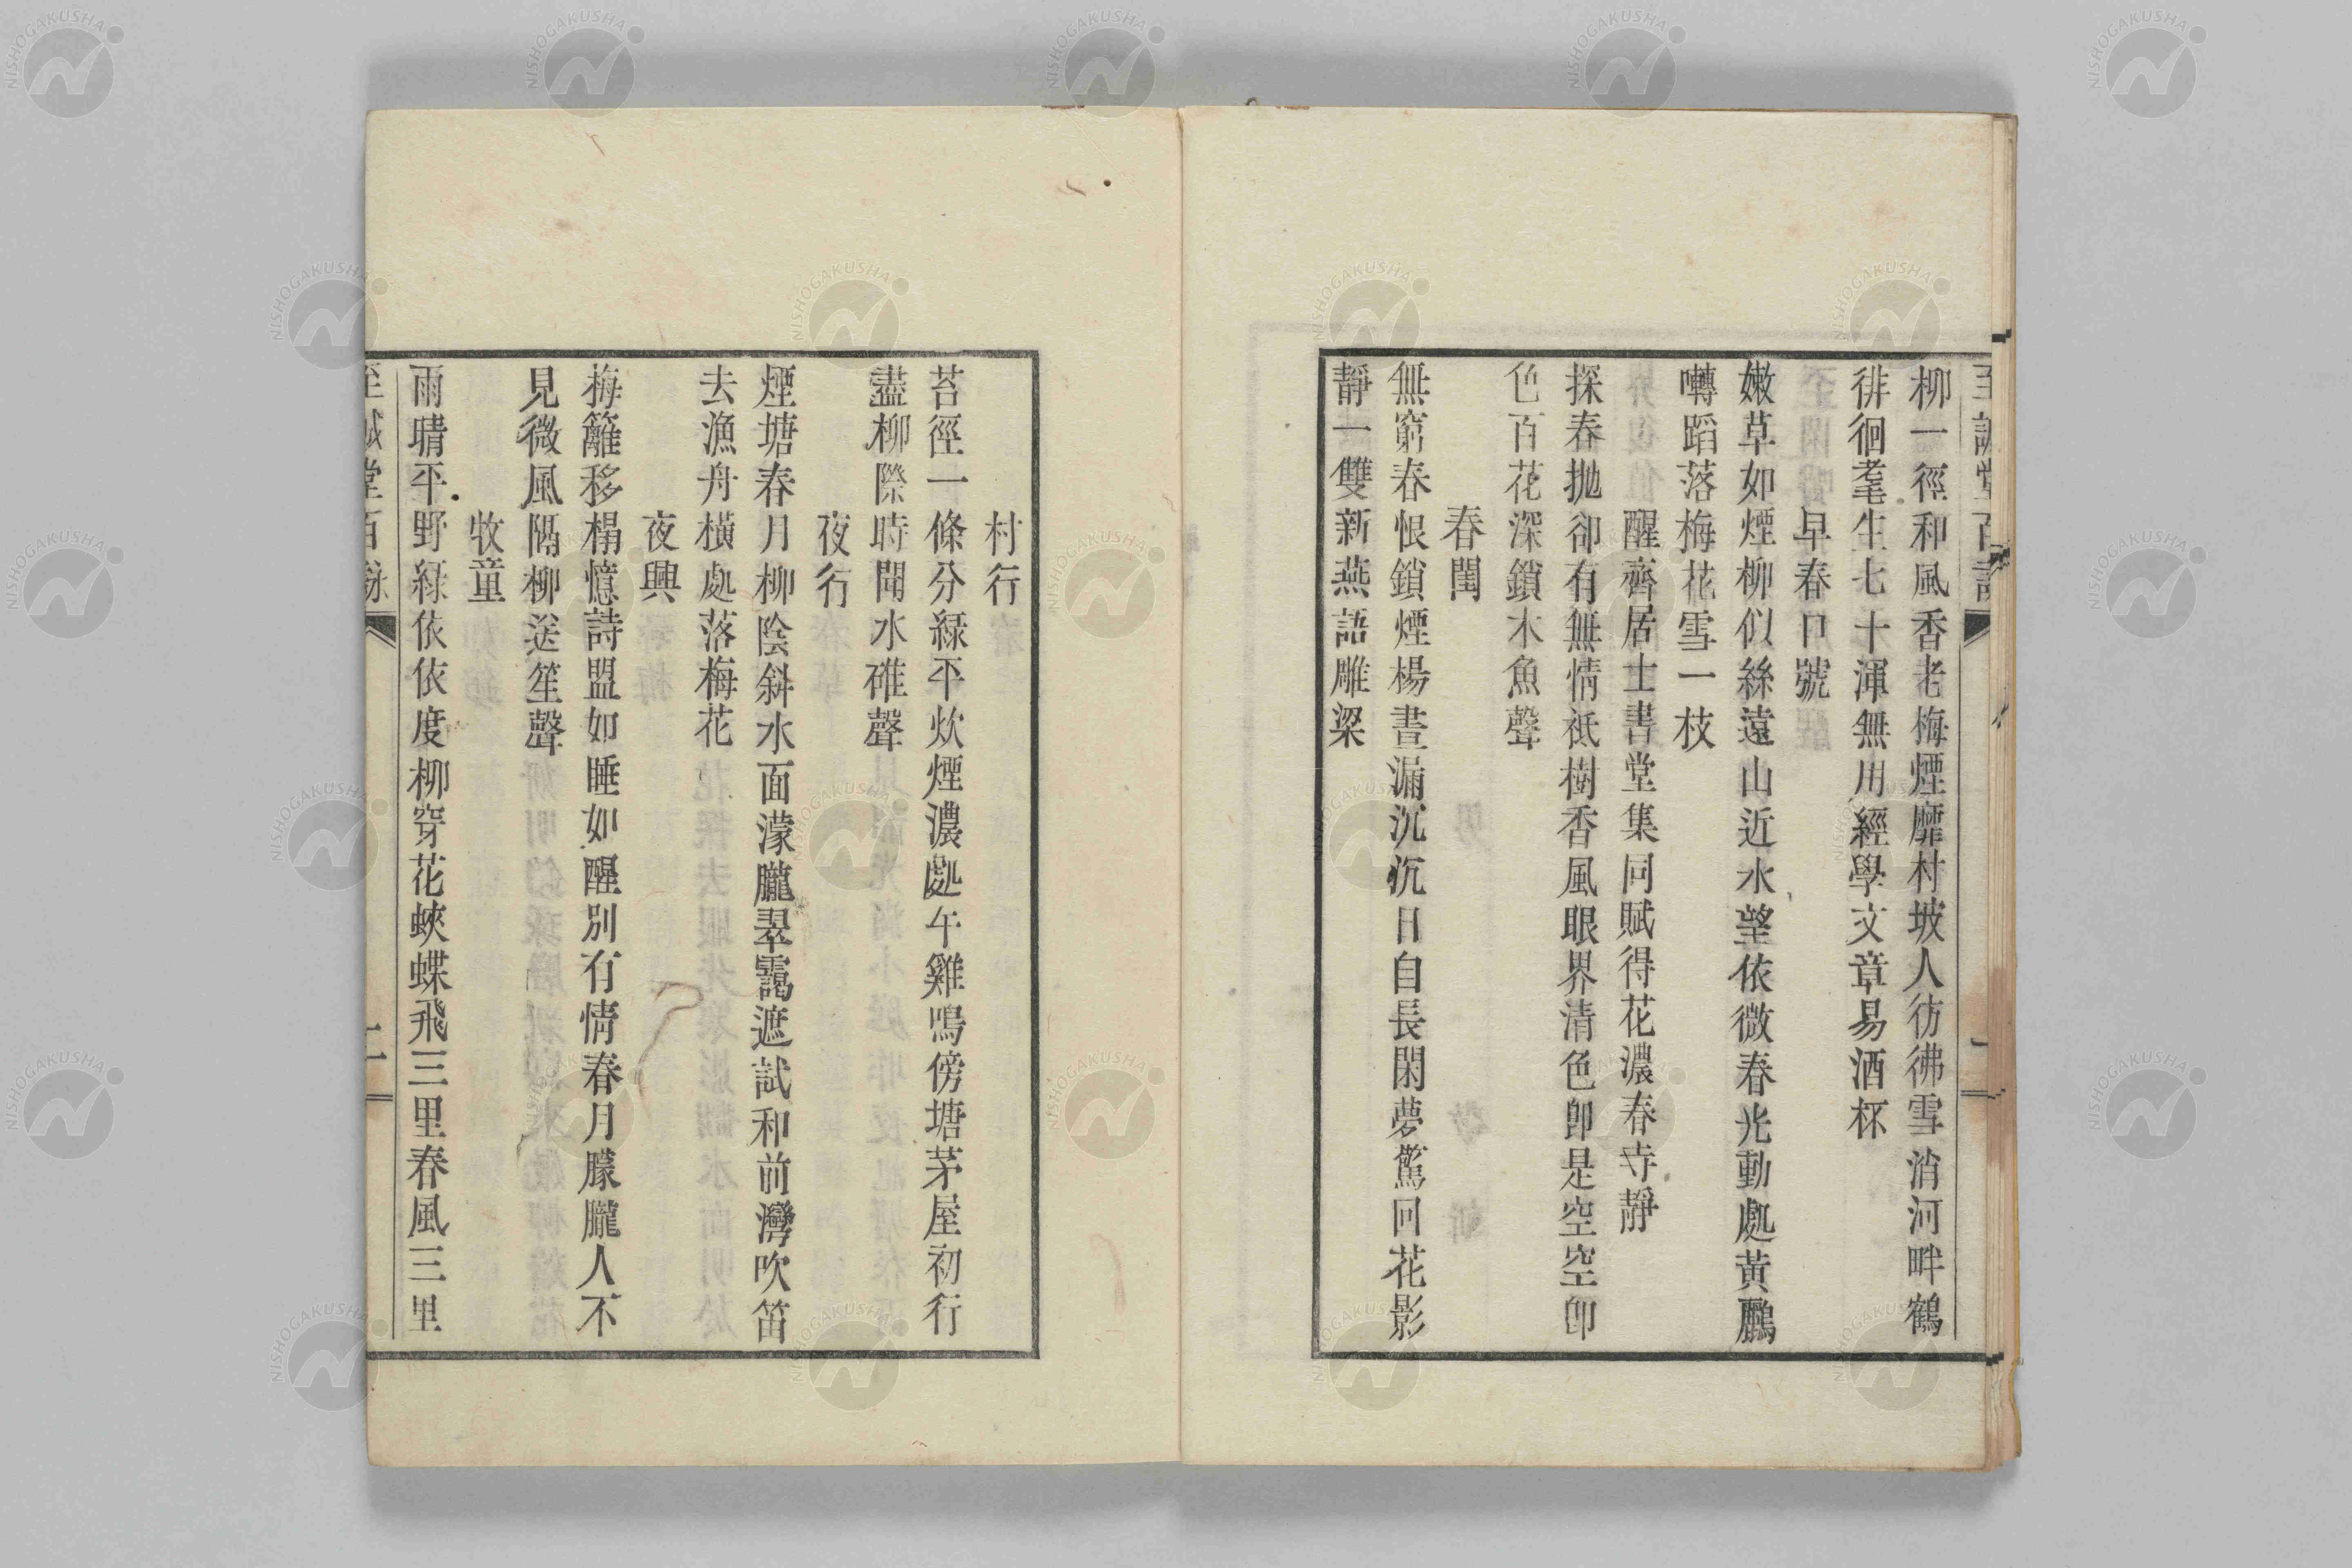 柳一徑和風香老梅煙靡村坡人彷彿雪消河畔鶴
徘徊耄生七十渾無用經學文章易酒杯
早春口號
嫩草如煙柳似絲遠山近水望依微春光動處黃鸝
囀蹈落梅花雪一枝
醒齋居士書堂集同賦得花濃春寺靜
探春拋卻有無情祇樹香風眼界清色卽是空空卽
色百花深鎖木魚聲
春閨
無窮春恨鎖煙楊晝漏沉沉日自長閑夢驚回花影
靜一雙新燕語雕梁
村行
苔徑一條分綠平炊煙濃處午雞鳴傍塘茅屋初行
盡柳際時聞水碓聲
夜行
煙塘春月柳陰斜水面濛朧翠靄遮試和前灣吹笛
去漁舟橫處落梅花
夜興
梅籬移榻憶詩盟如睡如醒別有情春月朦朧人不
見微風隔柳送笙聲
牧童
雨晴平野綠依依度柳穿花蛺蝶飛三里春風三里
至誠堂百詠
二
NISHOGAKUSHA